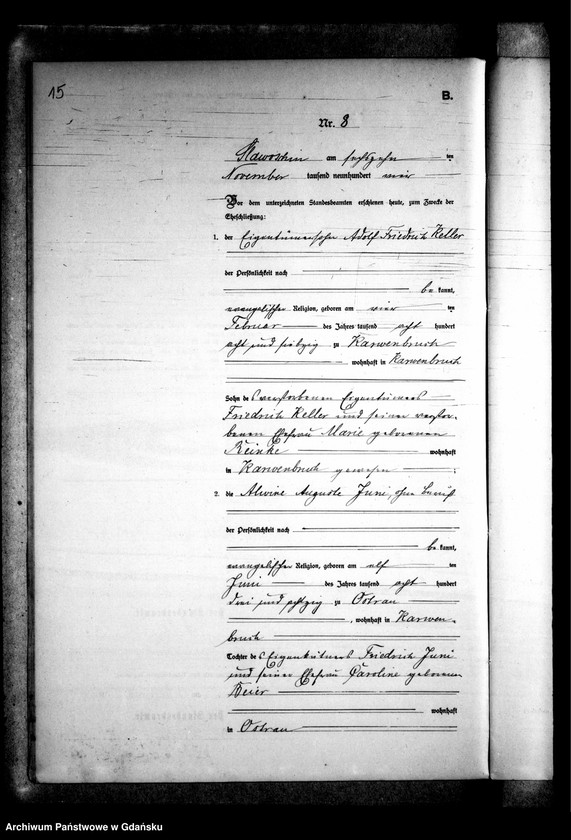 15
B.
Nr. 8
Slawoschin am sechszehn ten
November tausend neunhundert vier
Vor dem unterzeichneten Standesbeamten erschienen heute, zum Zwecke der
Eheschließung:
1. der Eigentümersohn Adolf Friedrich Keller
der Persönlichkeit nach
be kannt,
evangelischer Religion, geboren am vier ten
Februar des Jahres tausend acht hundert
acht und siebzig zu Karwenbruch
wohnhaft in Karwenbruch
Sohn des verstorbenen Eigentümers
Friedrich Keller und seiner verstor-
benen Ehefrau Marie geborenen
Reinke wohnhaft
in Karwenbruch gewesen ;
2. die Alwine Auguste Juni, ohne Beruf
der Persönlichkeit nach
be kannt,
evangelischer Religion, geboren am elf ten
Juni des Jahres tausend acht hundert
drei und achtzig zu Ostrau
, wohnhaft in Karwen-
bruch
Tochter des Eigentümers Friedrich Juni
und seiner Ehefrau Caroline geborenen
Beier
wohnhaft
in Ostrau
Archiwum Państwowe w Gdańsku